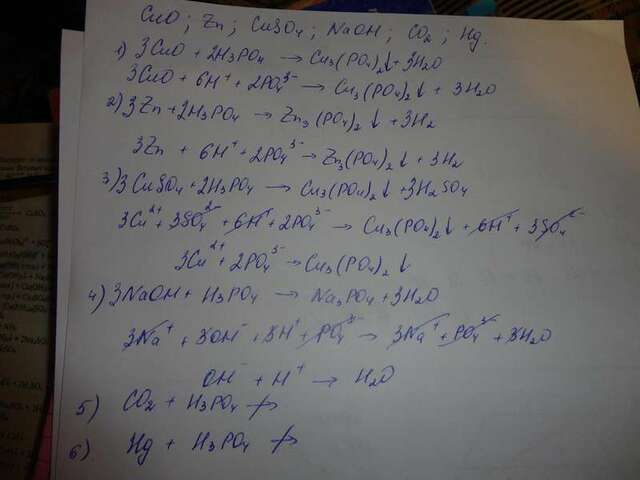 CuO ; Zn ; CuSO₄ ; NaOH ; CO₂ ; Hg.
1) 3CuO + 2H₃PO₄ → Cu₃(PO₄)₂↓ + 3H₂O
3CuO + 6H⁺ + 2PO₄³⁻ → Cu₃(PO₄)₂↓ + 3H₂O
2) 3Zn + 2H₃PO₄ → Zn₃(PO₄)₂↓ + 3H₂
3Zn + 6H⁺ + 2PO₄³⁻ → Zn₃(PO₄)₂↓ + 3H₂
3) 3CuSO₄ + 2H₃PO₄ → Cu₃(PO₄)₂↓ + 3H₂SO₄
3Cu²⁺ + 3SO₄²⁻ + 6H⁺ + 2PO₄³⁻ → Cu₃(PO₄)₂↓ + 6H⁺ + 3SO₄²⁻
3Cu²⁺ + 2PO₄³⁻ → Cu₃(PO₄)₂↓
4) 3NaOH + H₃PO₄ → Na₃PO₄ + 3H₂O
3Na⁺ + 3OH⁻ + 3H⁺ + PO₄³⁻ → 3Na⁺ + PO₄³⁻ + 3H₂O
OH⁻ + H⁺ → H₂O
5) CO₂ + H₃PO₄ ↛
6) Hg + H₃PO₄ ↛